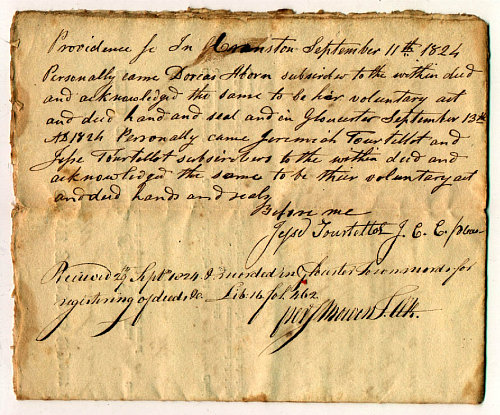 Providence sc In Cranston September 11th 1824
Personally came Dorcas Aborn subscriber to the within deed
and acknowledged the same to be her voluntary act
and deed hand and seal and in Gloucester September 13th
AD 1824 Personally came Jeremiah Tourtellot and
Jesse Tourtellot subscribers to the within deed and
acknowledged the same to be their voluntary act
and deed hands and seals
Before me
Jesse Tourtellot J. C. C. pleas
Received Sept 1824 & recorded in Glouster Town records for
registering of deeds &c Lib 16 fol. 462